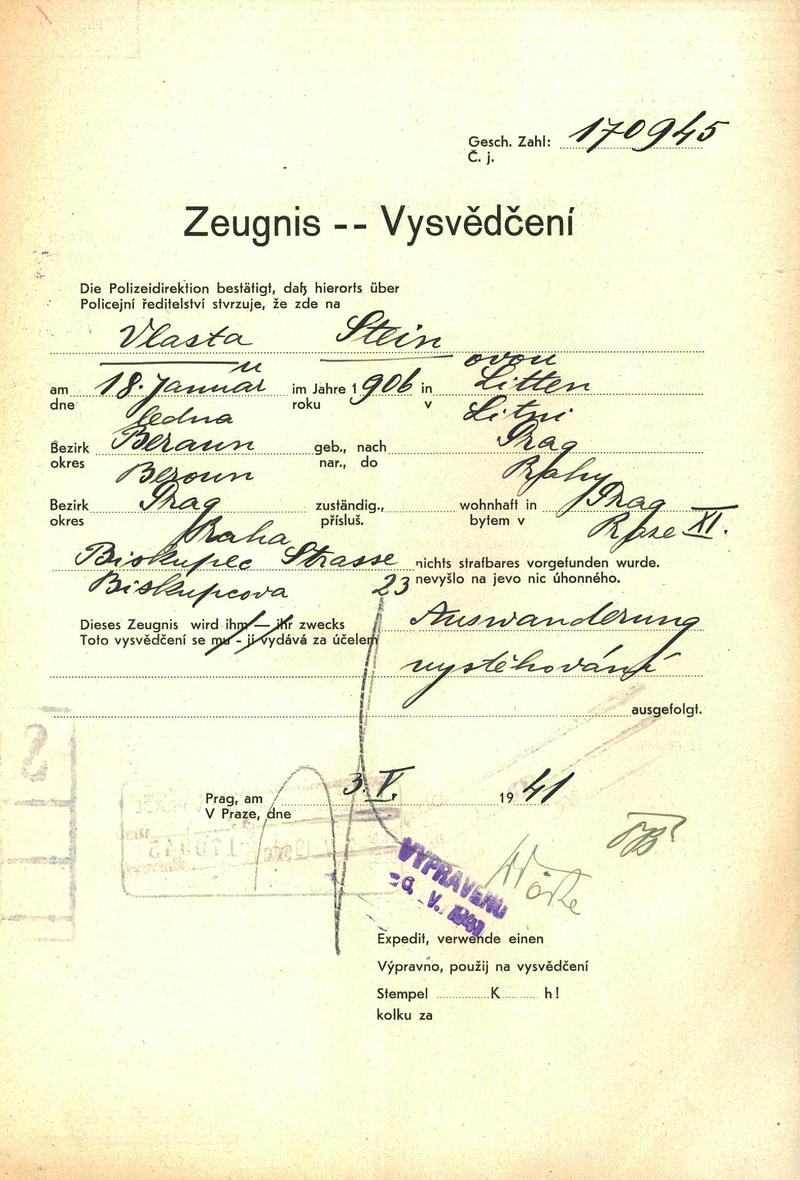 Gesch. Zahl: 170945
Č. j.
Zeugnis -- Vysvědčení
Die Polizeidirektion bestätigt, daß hierorts über
Policejní ředitelství stvrzuje, že zde na
Vlasta Stein
u ovou
am 18. Januar im Jahre 1906 in Litten
dne ledna roku v Litni
Bezirk Beraun geb., nach Prag
okres Beroun nar., do Prahy
Bezirk Prag zuständig., wohnhaft in Prag
okres Praha přísluš. bytem v Praze XI.
Biskupec Strasse nichts strafbares vorgefunden wurde.
Biskupcova 23 nevyšlo na jevo nic úhonného.
Dieses Zeugnis wird ihm — ihr zwecks Auswanderung
Toto vysvědčení se mu - jí vydává za účelem
vystěhování
ausgefolgt.
Prag, am 3. V. 1941
V Praze, dne
VYPRAVENO
V. 1941
Expedit, verwende einen
Výpravno, použij na vysvědčení
Stempel K h!
kolku za